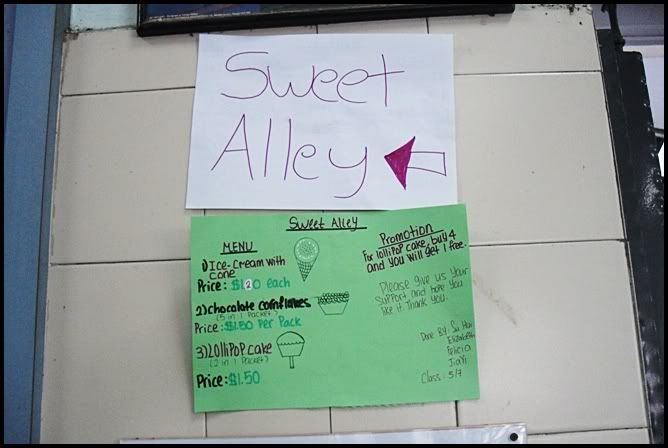 Sweet
Alley
Sweet Alley
MENU
1) Ice-cream with
cone
Price: $1.20 each
2) chocolate cornflakes
(5 in 1 packet)
Price: $1.50 Per Pack
3) LOlliPOP cake
(2 in 1 Packet)
Price: $1.50
Promotion
For lolliPOP cake, buy 4
and you will get 1 free.
Please give us your
support and hope you
like it. Thank you.
Done By: Su Hui
Elizabeth
Felicia
Jiayi
Class: 5/7